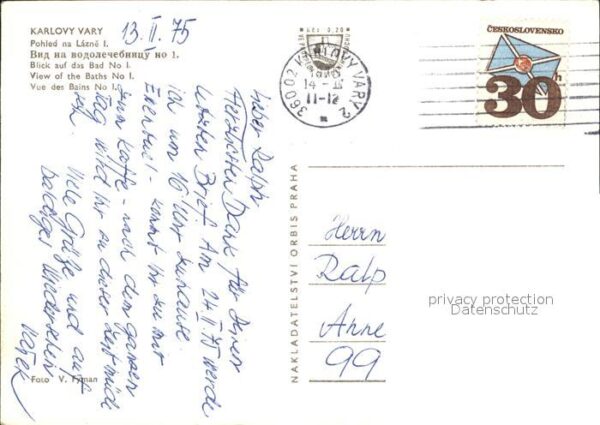 KARLOVY VARY
Pohled na Lázně I.
Вид на водолечебницу но 1.
Blick auf das Bad No I.
View of the Baths No I.
Vue des Bains No I.
13. II. 75
Lieber Ralph
Herzlichen Dank für Deinen
letzten Brief. Am 24 II 75 werde
ich um 16 Uhr zuhause
kommt Ihr zu mir
zum Kaffe - nach dem ganzen
Tag wird Ihr zu dieser Zeit müde
Viele Grüße und auf
baldiges Wiedersehen
Foto V. Fyman
NAKLADATELSTVÍ ORBIS PRAHA
360 02 KARLOVY VARY 2
14.-II.
11-12
ČESKOSLOVENSKO
30h
Herrn
Ralp
Ahne
99
privacy protection
Datenschutz